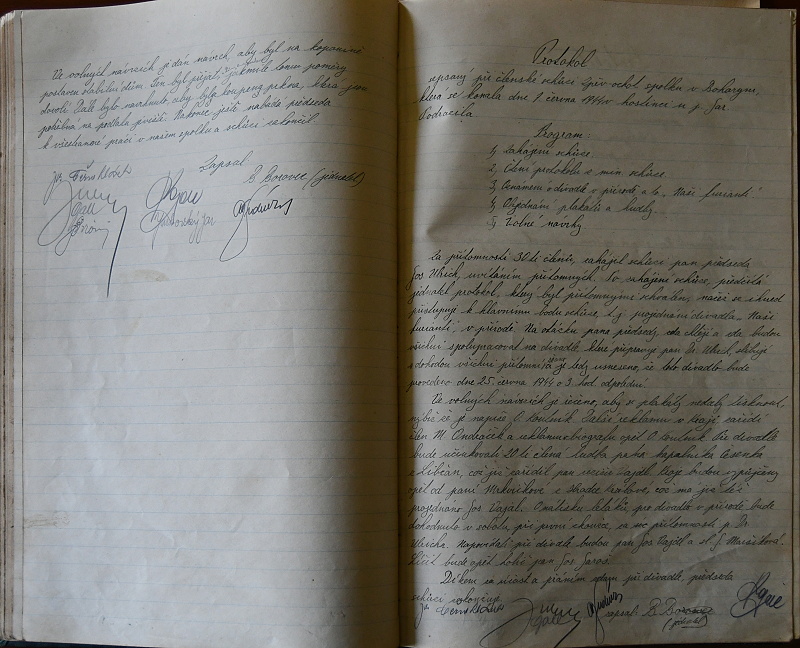 Ve volných návrzích je dán návrh, aby byl na kopanině
postaven slabikudům. Ten byl přijat, jakmile tomu poměry
dovolí. Dále bylo navrhnuto, aby byla koupena prkna, která jsou
potřebná na podlahu jeviště. Nakonec ještě nabádá předseda
k všestranné práci v našem spolku a schůzi zakončil.
Zapsal:
B. Borovec (jednatel)
Protokol
sepsaný při členské schůzi Čtěn. ochot. spolku v Boharyni,
která se konala dne 1. června 1944 v hostinci u p. Jar.
Vodracila
Program:
1, Zahájení schůze.
2, Čtení protokolu z min. schůze.
3, Oznámení o divadle v přírodě a to „Naši furianti“
4, Objednání plakátů a hudby.
5, Volné návrhy
Za přítomnosti 30ti členů, zahájil schůzi pan předseda
Jos. Ulrich, uvítáním přítomných. Po zahájení schůze, předčítá
jednatel protokol, který byl přítomnými schválen, načež se ihned
přistupuje k hlavnímu bodu schůze, t. j. projednání divadla „Naši
furianti“ v přírodě. Na otázku pana předsedy, zda chtějí a zda budou
všichni spolupracovat na divadle, které připravuje pan Dr. Ulrich, slibuje
s dohodou všichni přítomní a je tedy usneseno, že toto divadlo bude
provedeno dne 25. června 1944 o 3 hod. odpolední.
Ve volných návrzích je řečeno, aby se plakáty nedaly tisknout,
nýbrž že je napíše O. Koutník. Další reklamu v kraji zařídí
člen M. Ondráček a reklamu biografu opět O. Koutník. Při divadle
bude účinkovati 20ti členná hudba pana kapelníka Česenka
z Libčan, což již zařídil pan režisér Hajdl. Kroje budou vypůjčeny
opět od paní Mrkvičkové z Hradce Králové, což má již též
pojednáno Jos. Hajdl. O natisku letáků, pro divadlo v přírodě bude
dohodnuto v sobotu, při první zkoušce, za přítomnosti p. Dr.
Ulricha. Napovídati při divadle budou pan Jos. Hajdl a sl. J. Marášková.
Líčit bude opět holič pan Jos. Jaroš.
Díkem za účast a přáním zdaru při divadle, předseda
schůzi zakončuje.
zapsal: B. Borovec
(jednatel)